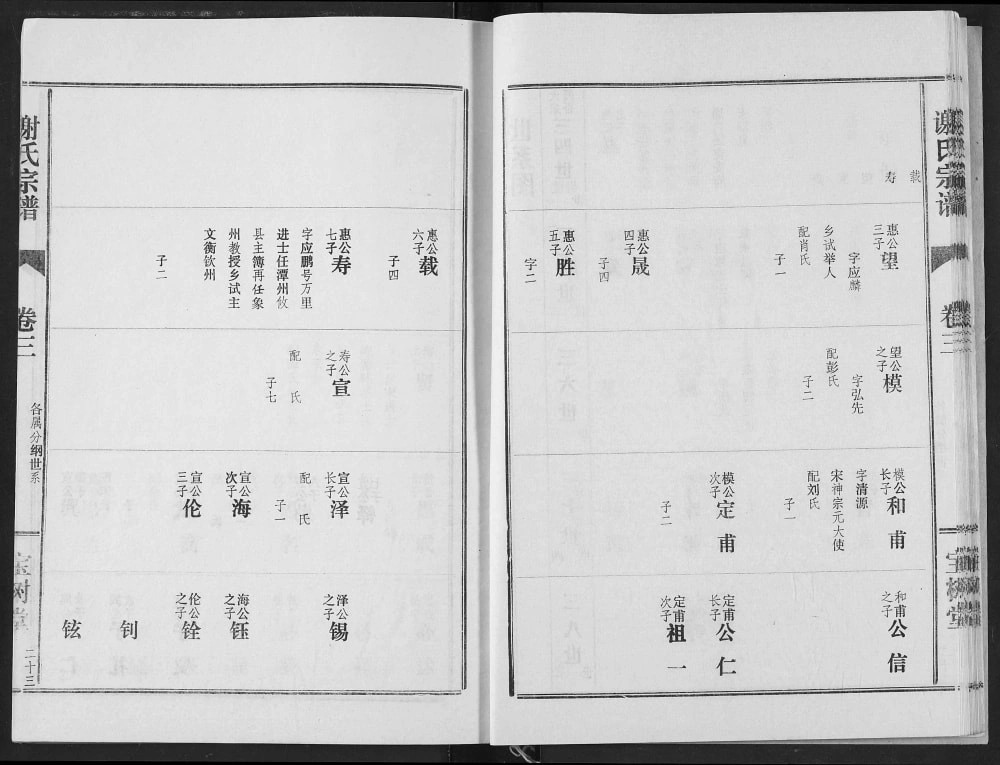 谢氏宗谱
卷三
宝树堂
载
寿
惠公
三子
望
字应麟
乡试举人
配肖氏
子一
惠公
四子
晟
子四
惠公
五子
胜
字二
望公
之子
模
字弘先
配彭氏
子二
模公
长子
和甫
字清源
宋神宗元大使
配刘氏
子一
模公
次子
定甫
子二
和甫
之子
公信
定甫
长子
公仁
定甫
次子
祖一
惠公
六子
载
子四
惠公
七子
寿
字应鹏号万里
进士任潭州攸
县主簿再任象
州教授乡试主
文衡钦州
子二
寿公
之子
宣
配氏
子七
宣公
长子
泽
配氏
子一
宣公
次子
海
宣公
三子
伦
泽公
之子
锡
海公
之子
钰
伦公
之子
铨
钊
铉
谢氏宗谱
卷三
各属分纲世系
宝树堂
二十三